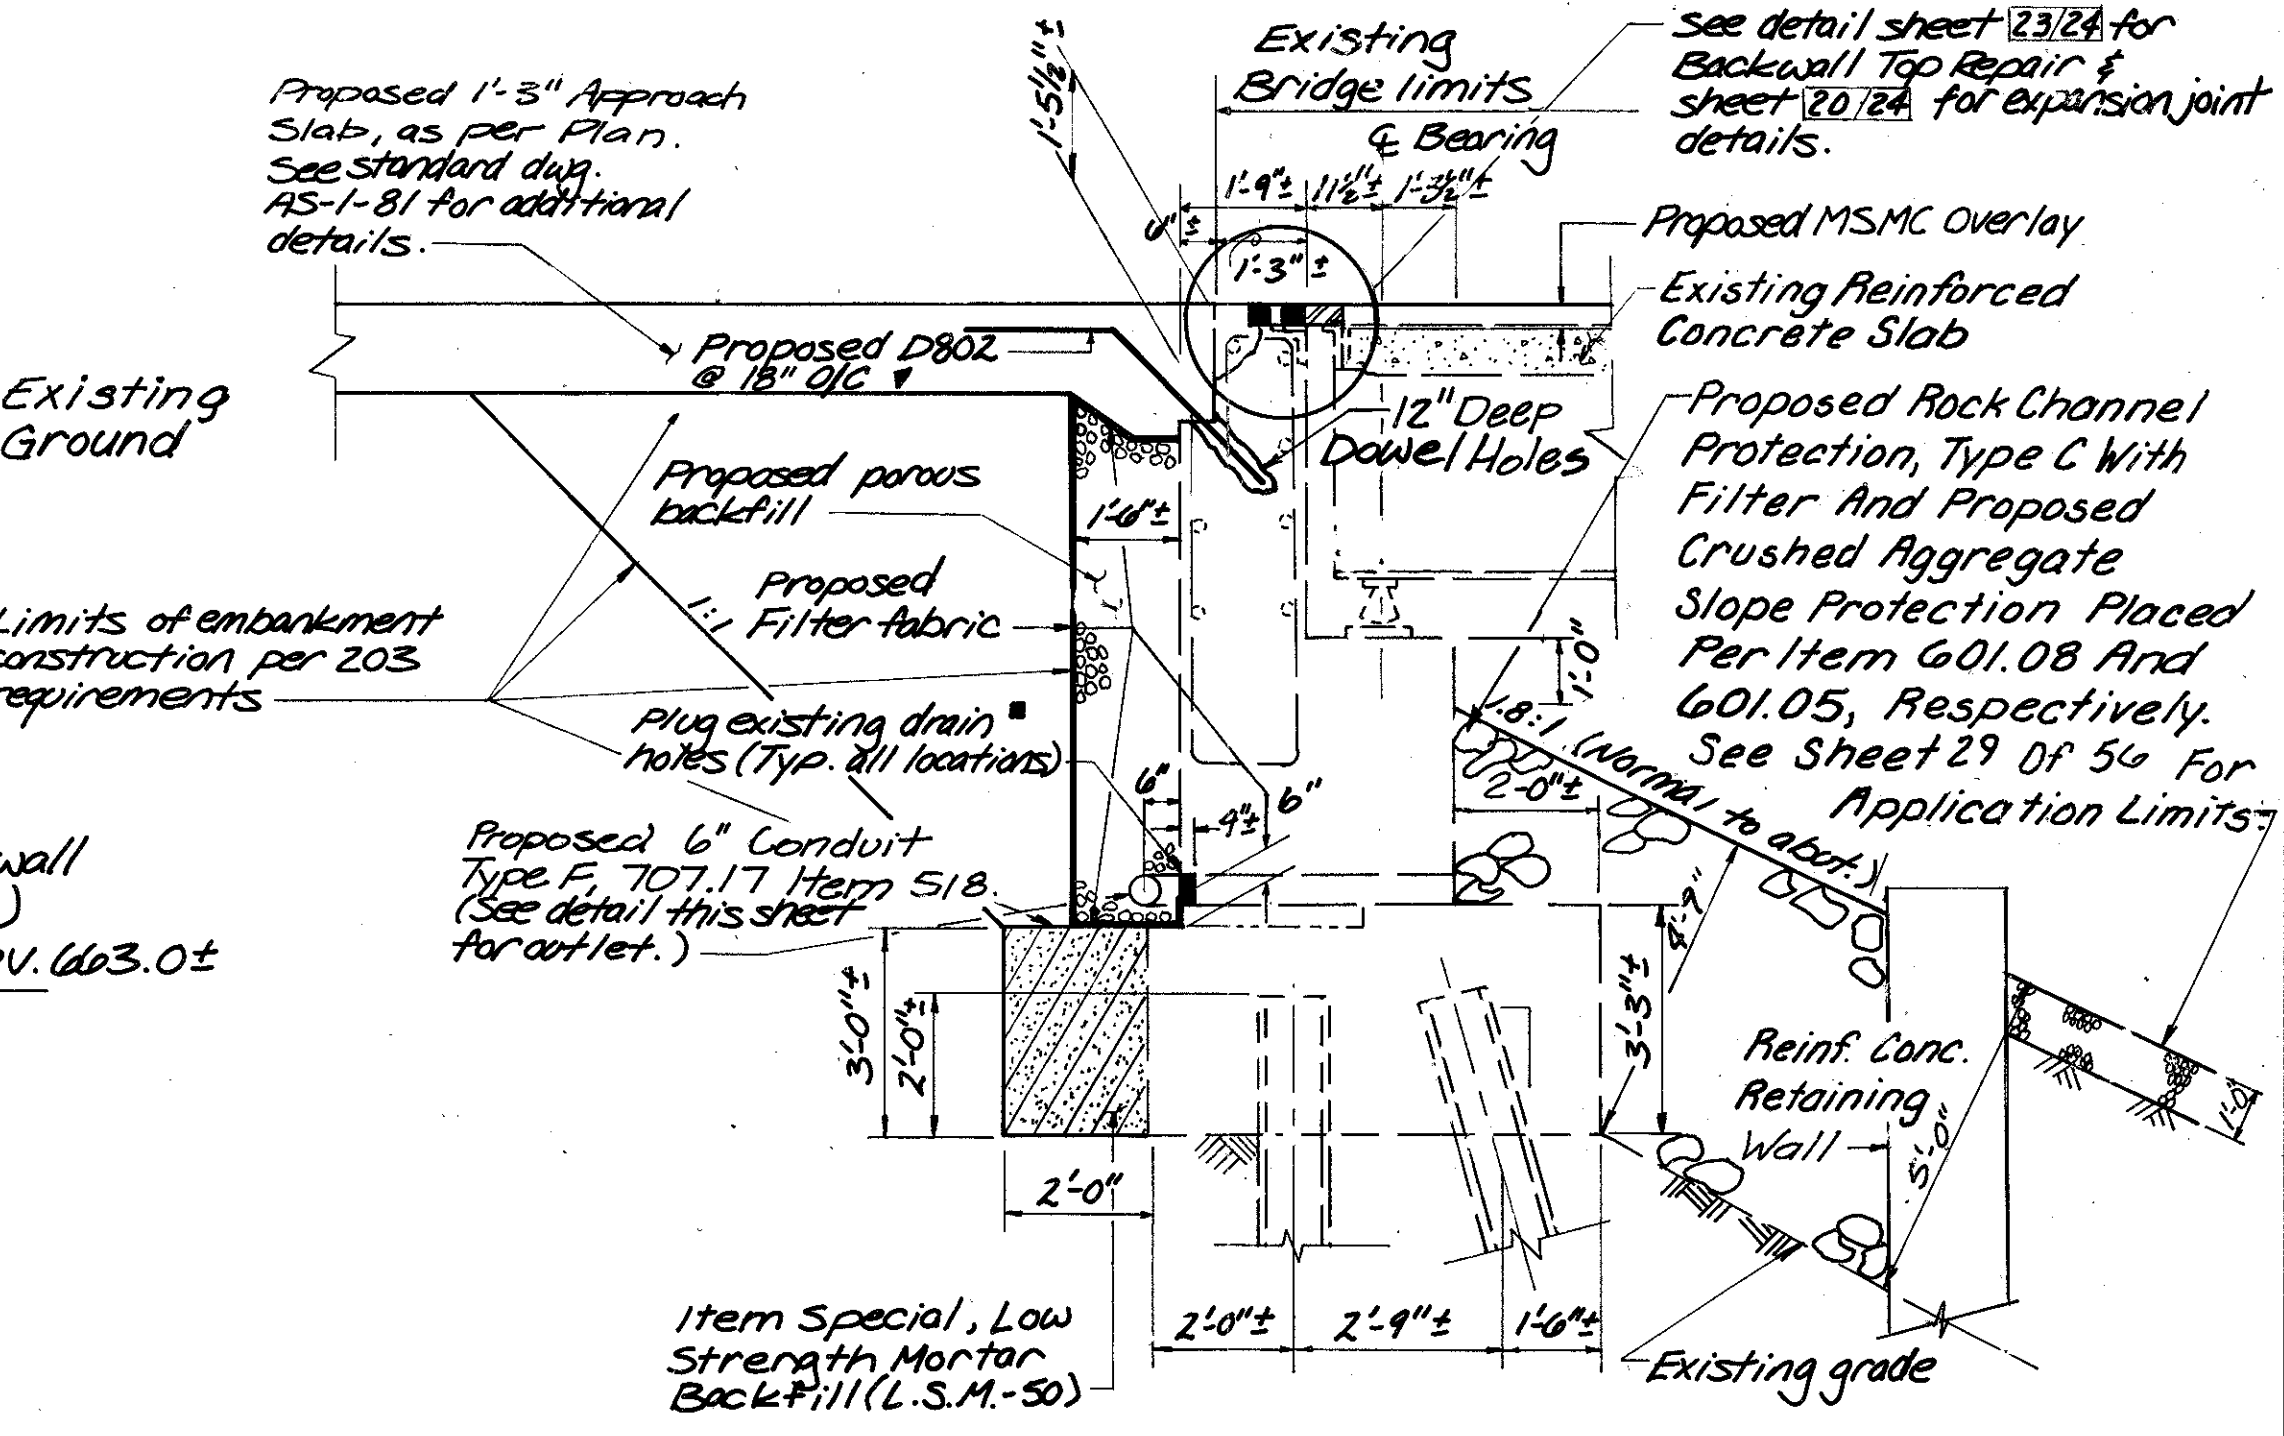 Proposed 1'-3" Approach
Slab, as per Plan.
See standard dwg.
AS-1-81 for additional
details.
1'-5 1/2" ±
Existing
Bridge limits
℄ Bearing
See detail sheet 23/24 for
Backwall Top Repair &
sheet 20/24 for expansion joint
details.
1'-9"±
11 1/2"±
1'-3 1/2"±
6"±
1'-3" ±
Proposed MSMC Overlay
Existing Reinforced
Concrete Slab
Proposed D802
@ 18" O/C ▼
Existing
Ground
12" Deep
Dowel Holes
Proposed Rock Channel
Protection, Type C With
Filter And Proposed
Crushed Aggregate
Slope Protection Placed
Per Item 601.08 And
601.05, Respectively.
See Sheet 29 Of 56 For
Application Limits.
Proposed porous
backfill
1'-6"±
Proposed
Filter fabric
1:1
Limits of embankment
construction per 203
requirements
1'-0"
Plug existing drain ■
holes (Typ. all locations)
1.8:1 (Normal to abut.)
2'-0"±
6"
4"±
6"
Proposed 6" Conduit
Type F, 707.17 Item 518.
(See detail this sheet
for outlet.)
wall
)
v. 663.0±
4'-9"
3'-0"±
2'-0"±
3'-3"±
Reinf. Conc.
Retaining
Wall
5'-0"
1'-0"
2'-0"
2'-0"±
2'-9"±
1'-6"±
Item Special, Low
Strength Mortar
Backfill (L.S.M.-50)
Existing grade